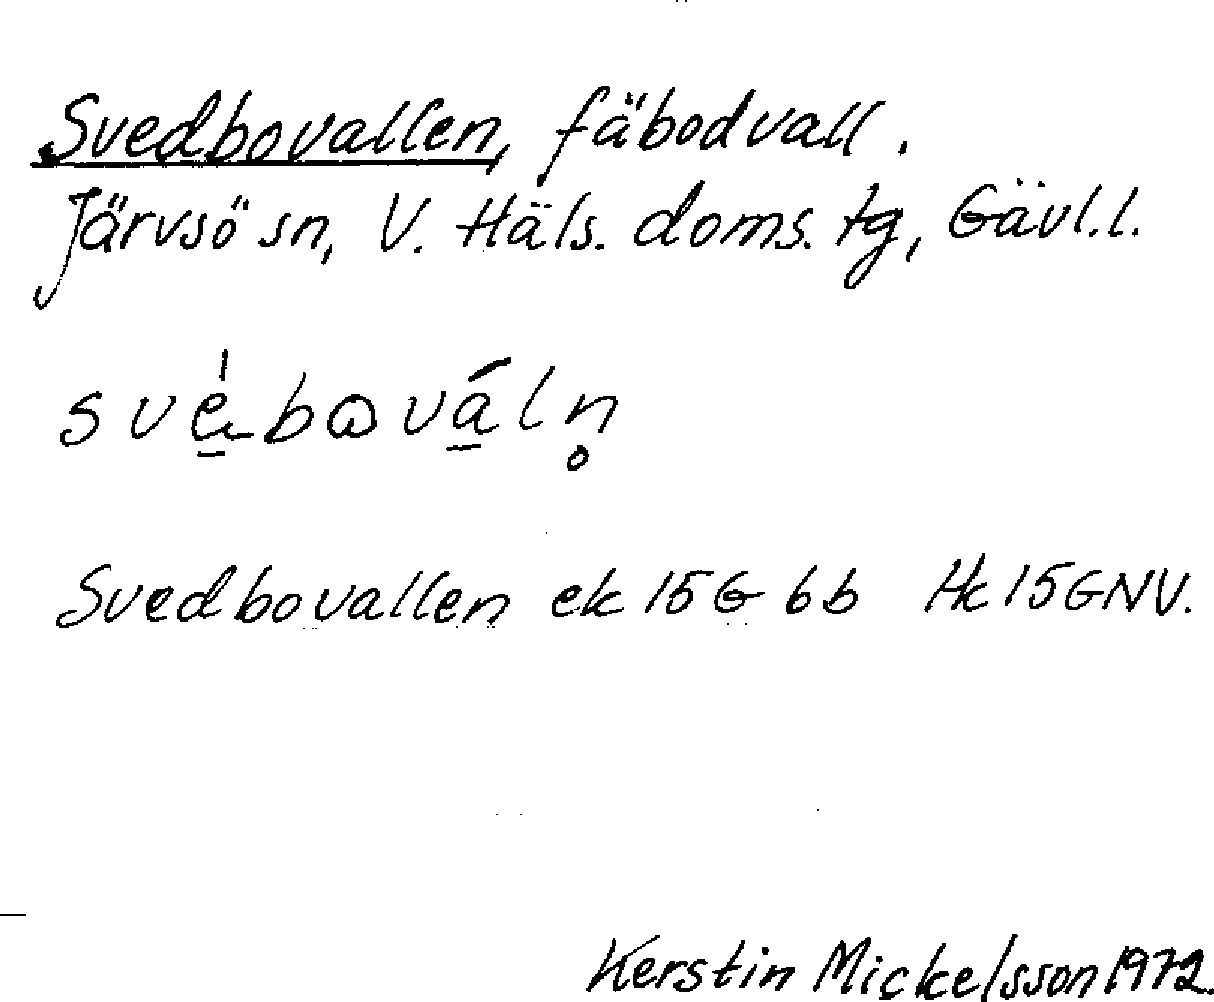 Svedbovallen, fäbodvall.
Järvsö sn, V. Häls. doms. tg, Gävl.l.
Svedbovallen ek 15G 6b Hk 15GNV.
Kerstin Mickelsson 1972.